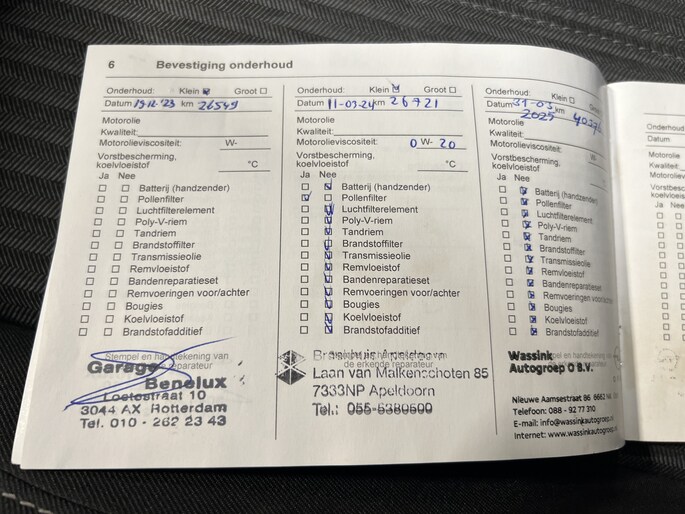 6 Bevestiging onderhoud
Onderhoud: Klein Groot
Datum 19.12.'23 km 26549
Motorolie
Kwaliteit:
Motorolieviscositeit: W-
Vorstbescherming,
koelvloeistof °C
Ja Nee
Batterij (handzender)
Pollenfilter
Luchtfilterelement
Poly-V-riem
Tandriem
Brandstoffilter
Transmissieolie
Remvloeistof
Bandenreparatieset
Remvoeringen voor/achter
Bougies
Koelvloeistof
Brandstofadditief
Stempel en handtekening van
reparateur
Garage
Benelux
Loetestraat 10
3044 AX Rotterdam
Tel. 010 - 262 23 43
Onderhoud: Klein Groot
Datum 11-03-24 km 26721
Motorolie
Kwaliteit:
Motorolieviscositeit: 0 W- 20
Vorstbescherming,
koelvloeistof °C
Ja Nee
Batterij (handzender)
Pollenfilter
Luchtfilterelement
Poly-V-riem
Tandriem
Brandstoffilter
Transmissieolie
Remvloeistof
Bandenreparatieset
Remvoeringen voor/achter
Bougies
Koelvloeistof
Brandstofadditief
de erkende reparateur
Laan van Malkenschoten 85
7333NP Apeldoorn
Tel.: 055-5380600
Onderhoud: Klein Groot
Datum 31-03 km
2025
Motorolie
Kwaliteit:
Motorolieviscositeit: W-
Vorstbescherming,
koelvloeistof
Ja Nee
Batterij (handzender)
Pollenfilter
Luchtfilterelement
Poly-V-riem
Tandriem
Brandstoffilter
Transmissieolie
Remvloeistof
Bandenreparatieset
Remvoeringen voor/achter
Bougies
Koelvloeistof
Brandstofadditief
Wassink
Autogroep O B.V.
Nieuwe Aamsestraat 86 6662
Telefoon: 088 - 92 77 310
E-mail: info@wassinkautogroep
Internet: www.wassinkautogroep
Onderhoud
Datum
Motorolie
Kwaliteit:
Motorolie
koelvloeistof
Ja Nee